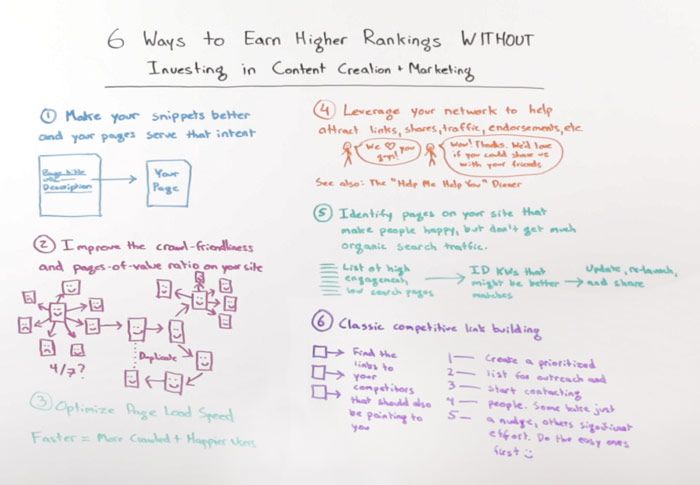 6 Ways to Earn Higher Rankings WITHOUT
Investing in Content Creation + Marketing
1 Make your snippets better
and your pages serve that intent
Page title
URL
Description
Your
Page
2 Improve the crawl-friendliness
and pages-of-value ratio on your site
Duplicate
4/7?
3 Optimize Page Load Speed
Faster = More Crawled + Happier Users
4 Leverage your network to help
attract links, shares, traffic, endorsements, etc.
We ♡ you
guys!
Wow! Thanks. We'd love
if you could share us
with your friends
See also: The "Help Me Help You" Dinner
5 Identify pages on your site that
make people happy, but don't get much
organic search traffic.
List of high
engagement,
low search pages
ID KWs that
might be better
matches
Update, re-launch,
and share
6 Classic competitive link building
Find the
links to
your
competitors
that should also
be pointing to
you
1 — Create a prioritized
2 — list for outreach and
3 — start contacting
4 — people. Some take just
5 — a nudge, others significant
effort. Do the easy ones
first :)